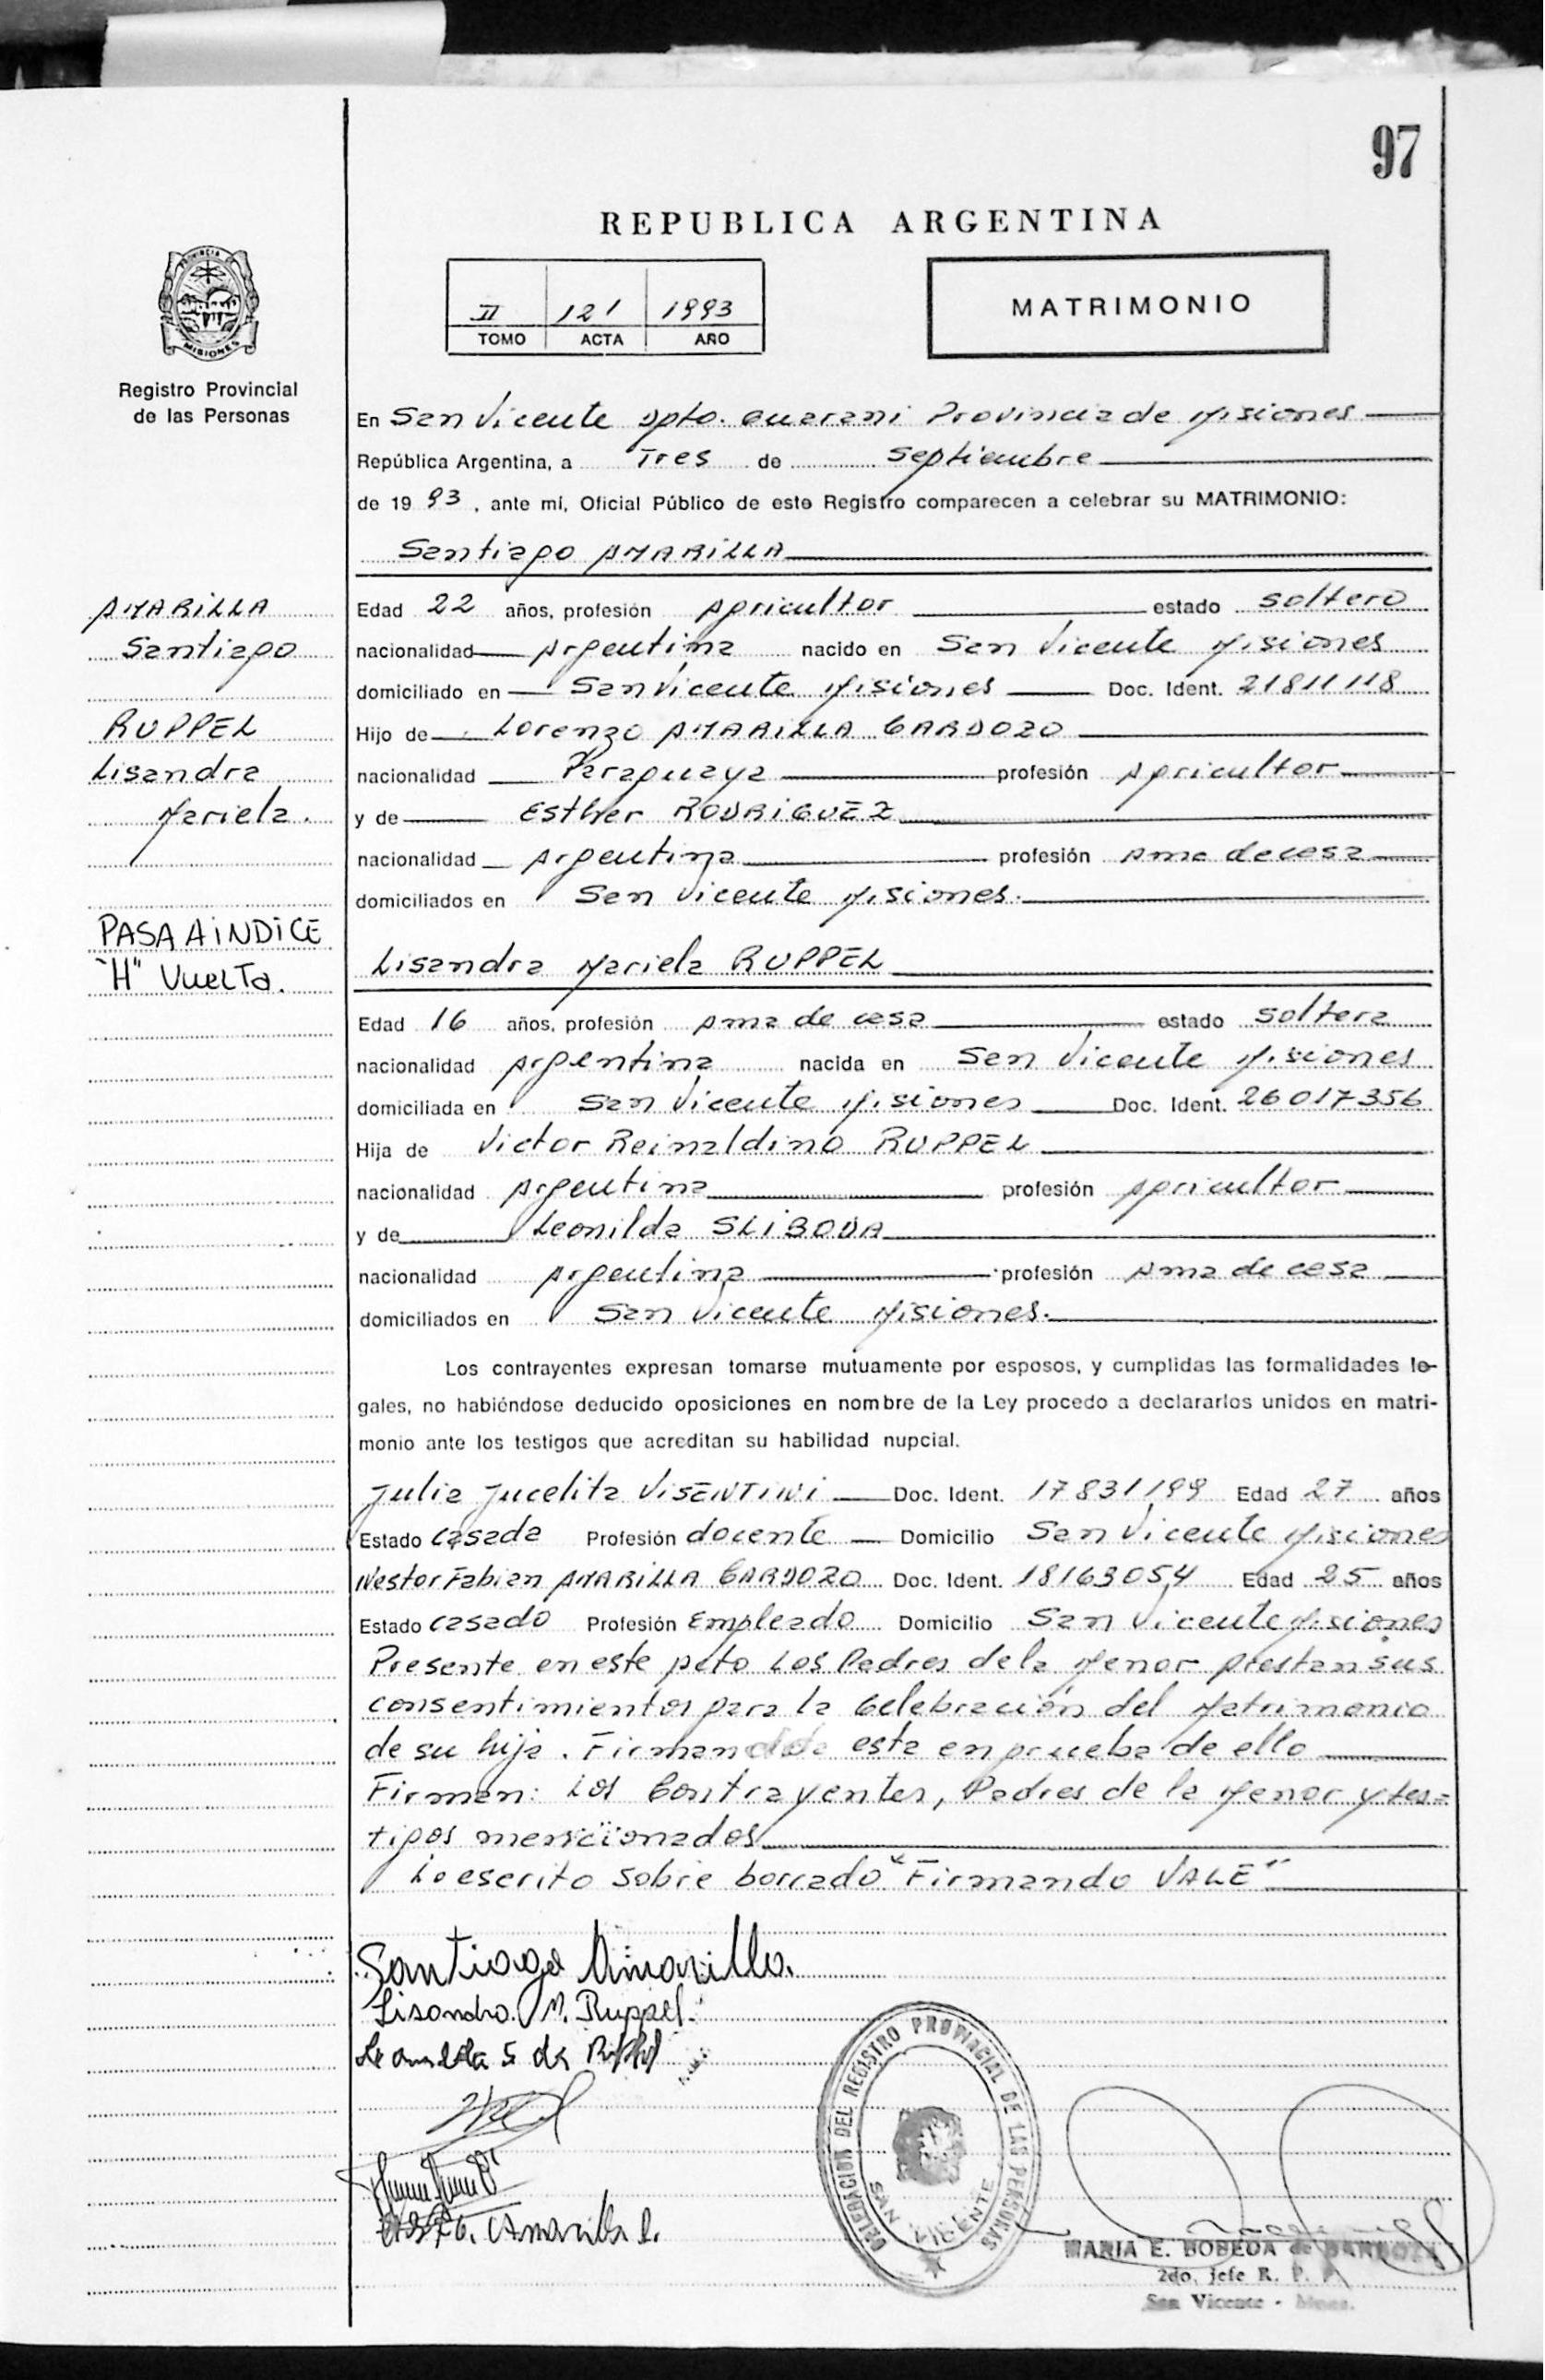 97
REPUBLICA ARGENTINA
PROVINCIA DE
MISIONES
Registro Provincial
de las Personas
II 121 1993
TOMO ACTA AÑO
MATRIMONIO
En San Vicente Dpto. Guarani Provincia de Misiones
República Argentina, a Tres de Septiembre
de 19 93, ante mí, Oficial Público de este Registro comparecen a celebrar su MATRIMONIO:
Santiago AMARILLA
AMARILLA
Santiago
RUPPEL
Lisandra
Mariela.
PASA A iNDiCE
"H" VueLTa.
Edad 22 años, profesión Agricultor estado soltero
nacionalidad Argentina nacido en San Vicente Misiones
domiciliado en San Vicente Misiones Doc. Ident. 21811118
Hijo de Lorenzo AMARILLA CARDOZO
nacionalidad Paraguaya profesión Agricultor
y de Esther RODRIGUEZ
nacionalidad Argentina profesión Ama de casa
domiciliados en San Vicente Misiones.
Lisandra Mariela RUPPEL
Edad 16 años, profesión Ama de casa estado soltera
nacionalidad Argentina nacida en San Vicente Misiones
domiciliada en San Vicente Misiones Doc. Ident. 26017356
Hija de Victor Reinaldino RUPPEL
nacionalidad Argentina profesión Agricultor
y de Leonilda SLIBODA
nacionalidad Argentina profesión Ama de casa
domiciliados en San Vicente Misiones.
Los contrayentes expresan tomarse mutuamente por esposos, y cumplidas las formalidades le-
gales, no habiéndose deducido oposiciones en nombre de la Ley procedo a declararlos unidos en matri-
monio ante los testigos que acreditan su habilidad nupcial.
Julia Jucelita VISENTINI Doc. Ident. 17831199 Edad 27 años
Estado Casada Profesión docente Domicilio San Vicente Misiones
Nestor Fabian AMARILLA CARDOZO Doc. Ident. 18163054 Edad 25 años
Estado Casado Profesión Empleado Domicilio San Vicente Misiones
Presente en este Acto Los Padres de la Menor prestan sus
consentimientos para la Celebración del Matrimonio
de su hija. Firmando esta en prueba de ello
Firman: Los Contrayentes, Padres de la Menor y tes=
tigos mencionados
Lo escrito sobre borrado "Firmando VALE"
Santiago Amarilla.
Lisandra M. Ruppel.
Leonilda S de Ruppel
Amarilla
DELEGACION DEL REGISTRO PROVINCIAL DE LAS PERSONAS
SAN VICENTE
MARIA E. BOBEDA de BARBOZA
2do. Jefe R. P. P.
San Vicente - Mnes.